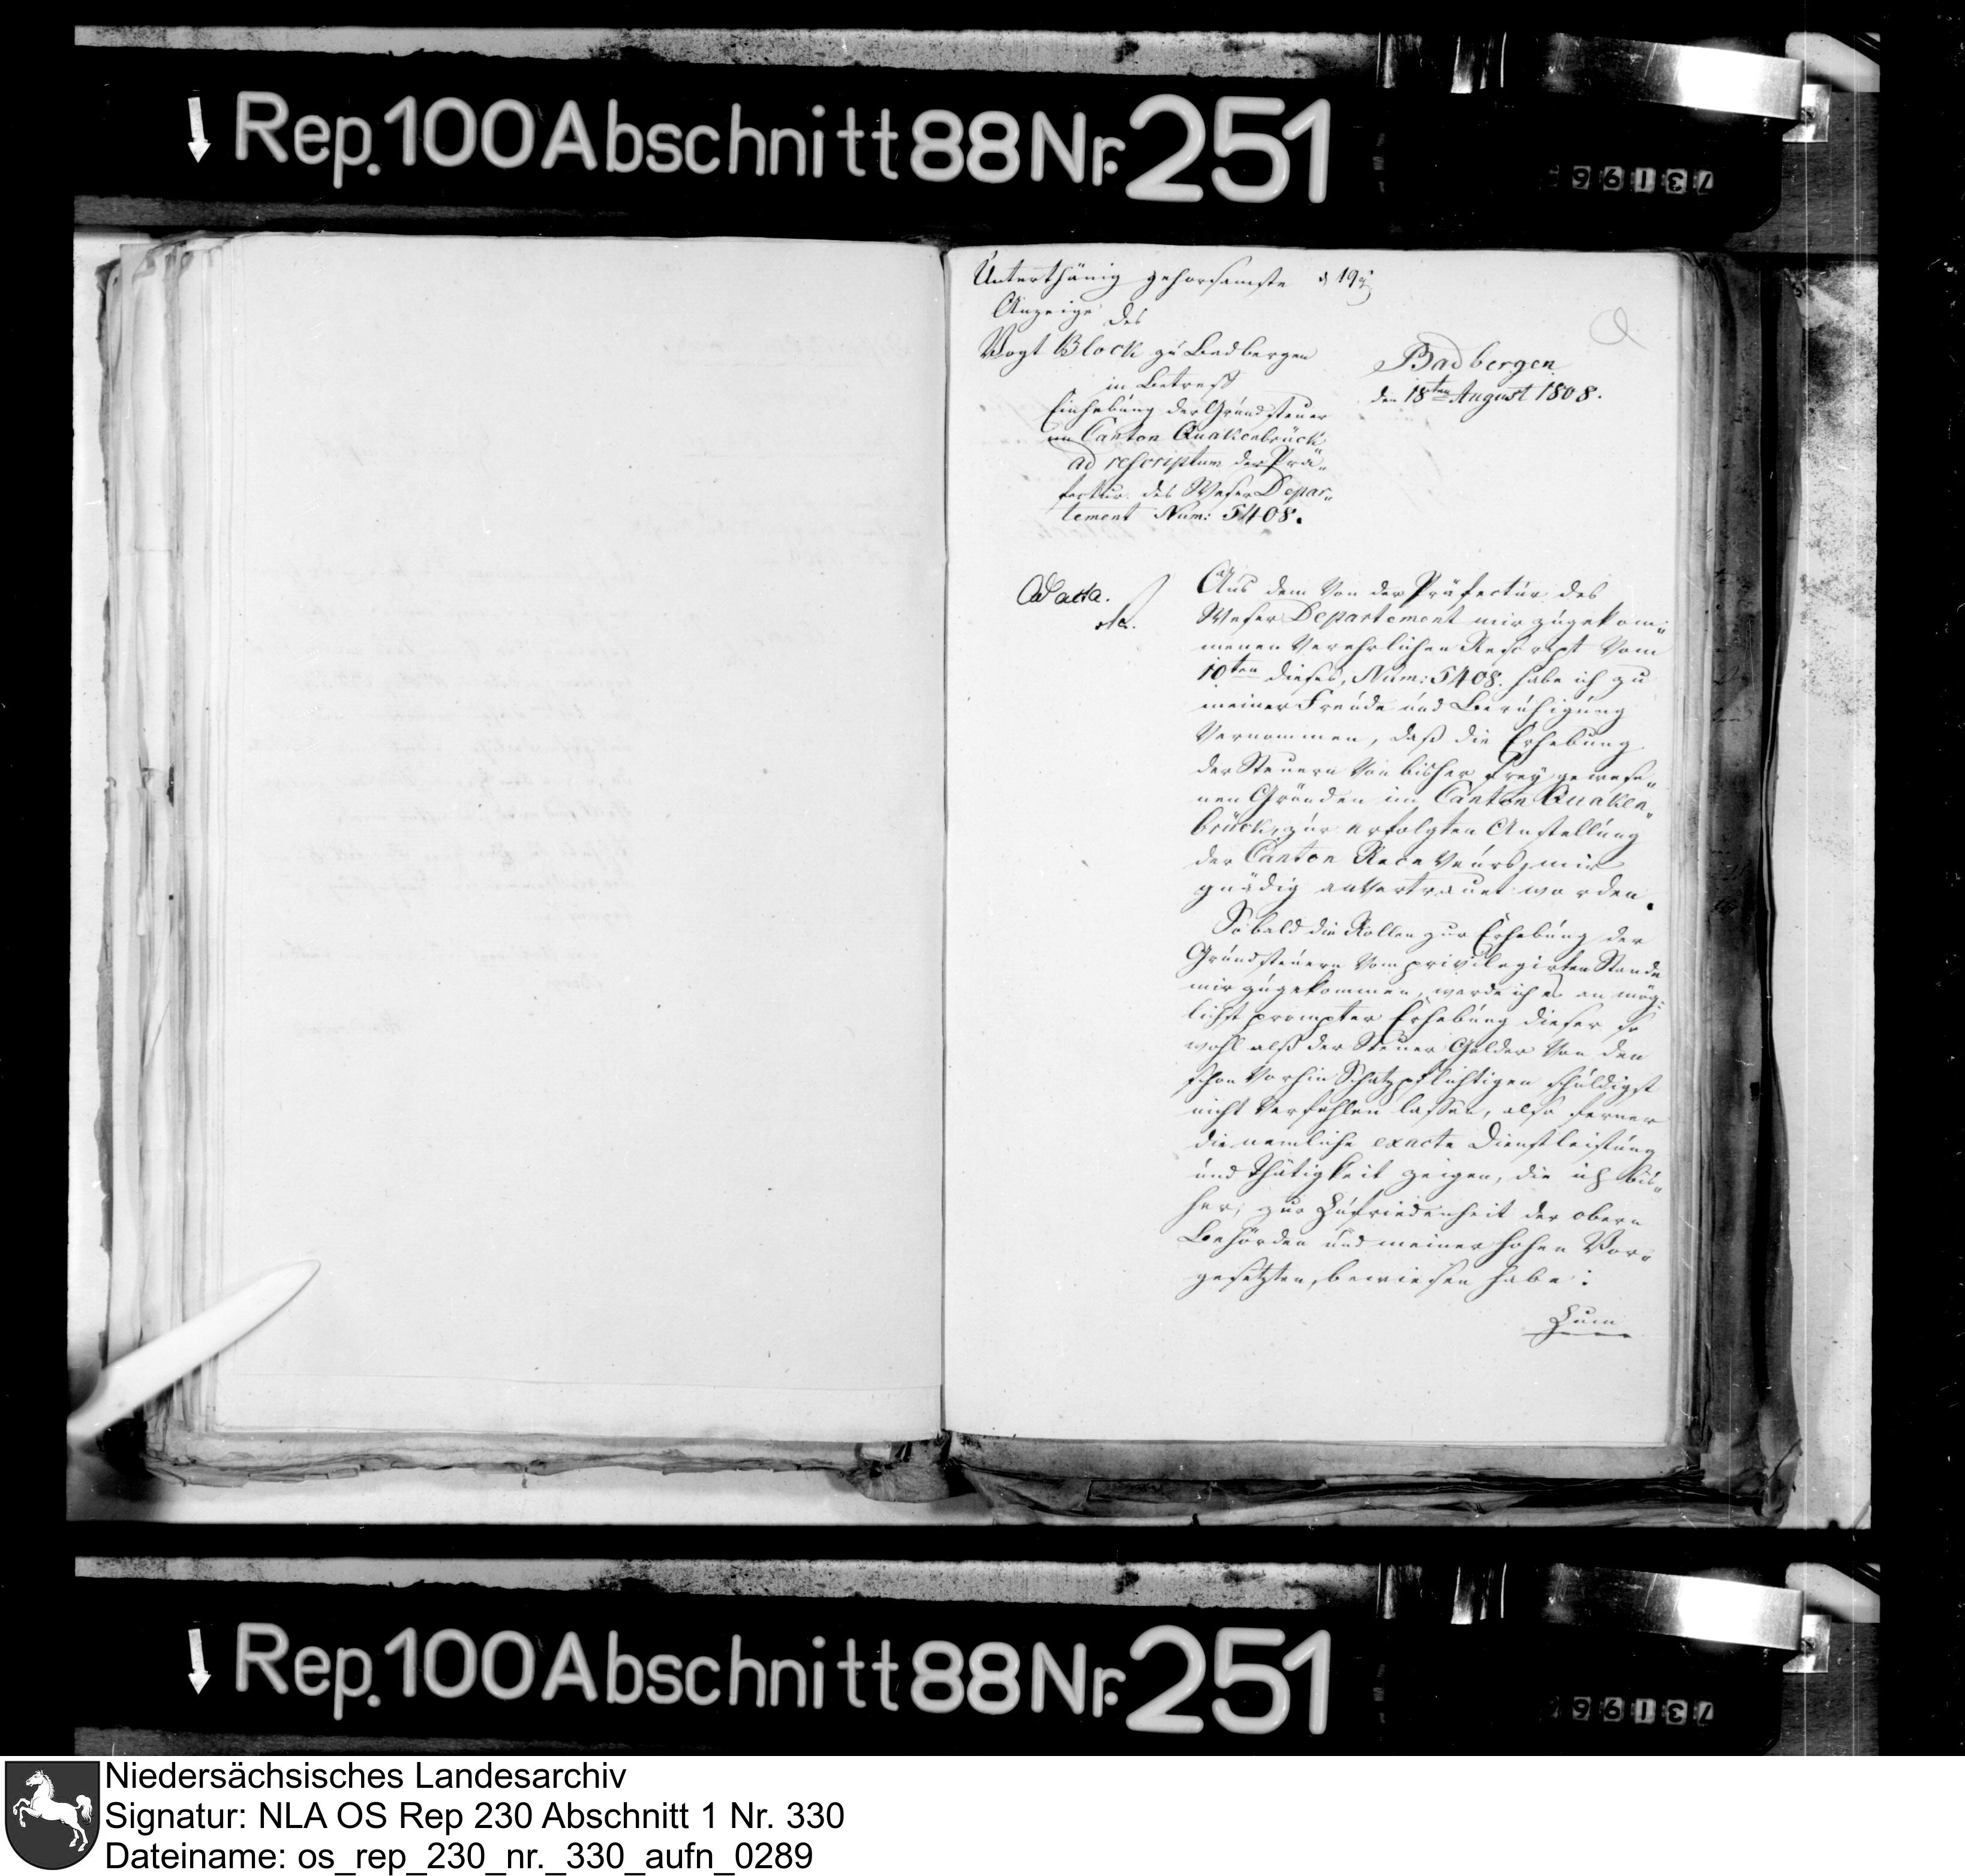 Rep. 100 Abschnitt 88 Nr. 251
73196
Unterthänig gehorsamste
Anzeige des
Vogt Block zu Badbergen
in Betreff
Einhebung der Grundsteuer
im Canton Quakenbrück
ad rescriptum der Prä„
fectur des Weser Depar„
tement Num: 5408.
Badbergen
den 18ten August 1808.
Ad acta.
Aus dem von der Präfectur des
Weser Departement mir zugekom„
menen Verehrlichen Rescript vom
10ten dieses, Num: 5408. habe ich zu
meiner Freude und Beruhigung
Vernommen, daß die Erhebung
der Steuern von bisher frey gewese„
nen Gründen im Canton Quaken„
brück, zur erfolgten Anstellung
der Canton Receveurs, mir
gnädig anvertrauet worden.
So bald die Rollen zur Erhebung der
Grundsteuern vom privilegirten Stande
mir zugekommen, werde ich es an mög„
lichst prompter Erhebung dieser so
wohl alß der Steuer Gelder von den
schon vorhin Schatzpflichtigen schuldigst
nicht verfehlen lassen, also ferner
die nemliche exacte Dienstleistung
und Thätigkeit zeigen, die ich bis„
her, zur Zufriedenheit der obern
Behörden und meiner hohen Vor„
gesetzten, bewiesen habe:
Zum
Rep. 100 Abschnitt 88 Nr. 251
73196
Niedersächsisches Landesarchiv
Signatur: NLA OS Rep 230 Abschnitt 1 Nr. 330
Dateiname: os_rep_230_nr._330_aufn_0289